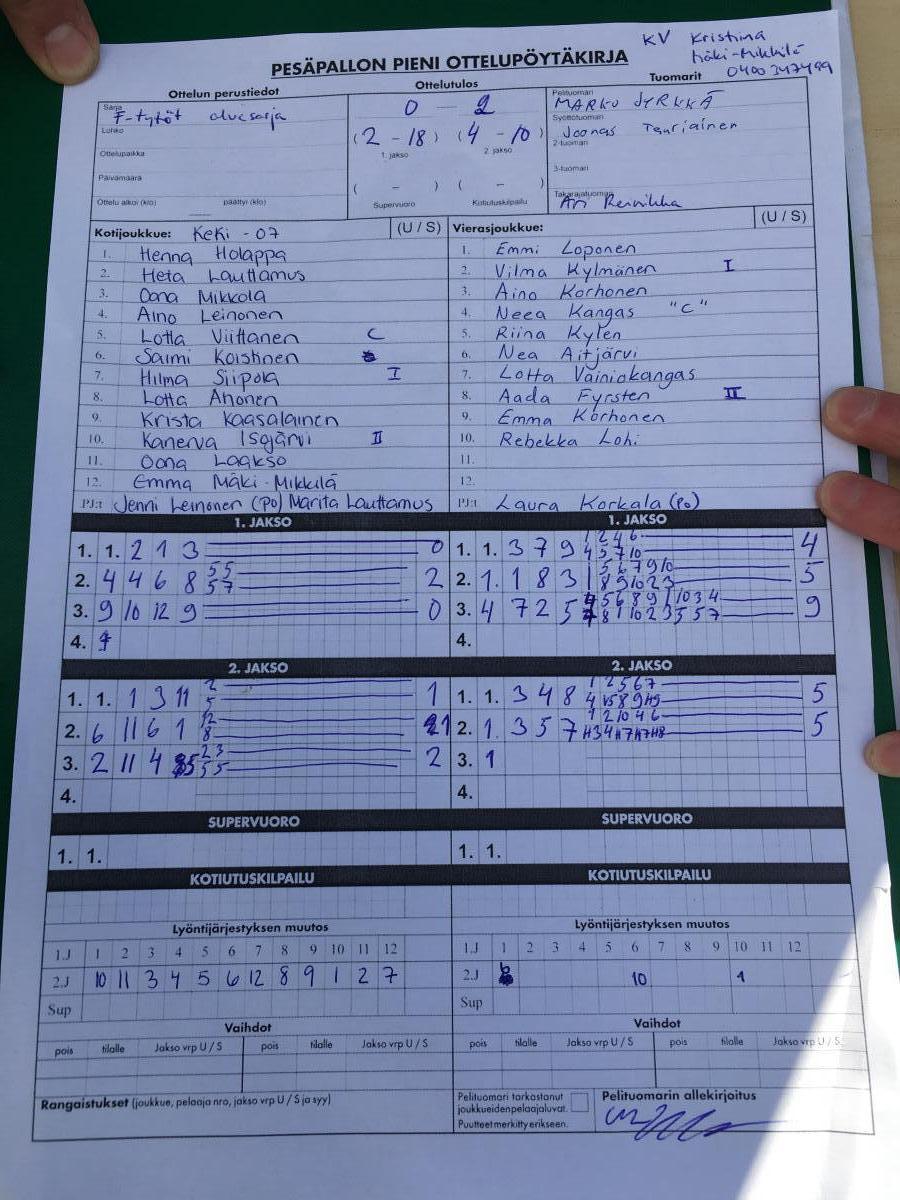 KV Kristiina
Mäki-Mikkilä
0400 247499
PESÄPALLON PIENI OTTELUPÖYTÄKIRJA
Ottelun perustiedot Ottelutulos Tuomarit
Sarja F-tytöt aluesarja
Lohko
Ottelupaikka
Päivämäärä
Ottelu alkoi (klo) päättyi (klo)
0 - 2
(2 - 18) (4 - 10)
1. jakso 2. jakso
( - ) ( - )
Supervuoro Kotiutuskilpailu
Pelituomari MARKO JYRKKÄ
Syöttötuomari
Joonas Tauriainen
2-tuomari
3-tuomari
Takarajatuomari
Ari
Kotijoukkue: KeKi - 07 (U / S)
1. Henna Holappa
2. Heta Lauttamus
3. Oona Mikkola
4. Aino Leinonen
5. Lotta Viittanen C
6. Saimi Koistinen
7. Hilma Siipola I
8. Lotta Ahonen
9. Krista Kaasalainen
10. Kanerva Isojärvi II
11. Oona Laakso
12. Emma Mäki-Mikkilä
PJ:t Jenni Leinonen (PO) Marita Lauttamus
Vierasjoukkue: (U / S)
1. Emmi Loponen
2. Vilma Kylmänen I
3. Aino Korhonen
4. Neea Kangas "C"
5. Riina Kylen
6. Nea Aitjärvi
7. Lotta Väiniökangas
8. Aada Fyrsten II
9. Emma Korhonen
10. Rebekka Lohi
11.
12.
PJ:t Laura Korkala (PO)
1. JAKSO
1. 1. 2 1 3 0
2. 4 4 6 8 55 57 2
3. 9 10 12 9 0
4.
1. JAKSO
1. 1. 3 7 9 1 2 4 6 4 5 7 10 4
2. 1. 1 8 3 1 5 6 7 9 10 8 9 10 2 3 5
3. 4 7 2 5 9
4.
2. JAKSO
1. 1. 1 3 11 2 5 1
2. 6 11 6 1 12 8 1
3. 2 11 4 23 55 2
4.
2. JAKSO
1. 1. 3 4 8 1 2 5 6 7 5
2. 1. 3 5 7 1 2 10 4 6 5
3. 1
4.
SUPERVUORO
1. 1.
SUPERVUORO
1. 1.
KOTIUTUSKILPAILU
KOTIUTUSKILPAILU
Lyöntijärjestyksen muutos
1.J 1 2 3 4 5 6 7 8 9 10 11 12
2.J 10 11 3 4 5 6 12 8 9 1 2 7
Sup
Lyöntijärjestyksen muutos
1.J 1 2 3 4 5 6 7 8 9 10 11 12
2.J 10 1
Sup
Vaihdot
pois tilalle Jakso vrp U / S pois tilalle Jakso vrp U / S
Vaihdot
pois tilalle Jakso vrp U / S pois tilalle Jakso vrp U / S
Rangaistukset (joukkue, pelaaja nro, jakso vrp U / S ja syy)
Pelituomari tarkastanut
joukkueidenpelaajaluvat.
Puutteet merkitty erikseen.
Pelituomarin allekirjoitus